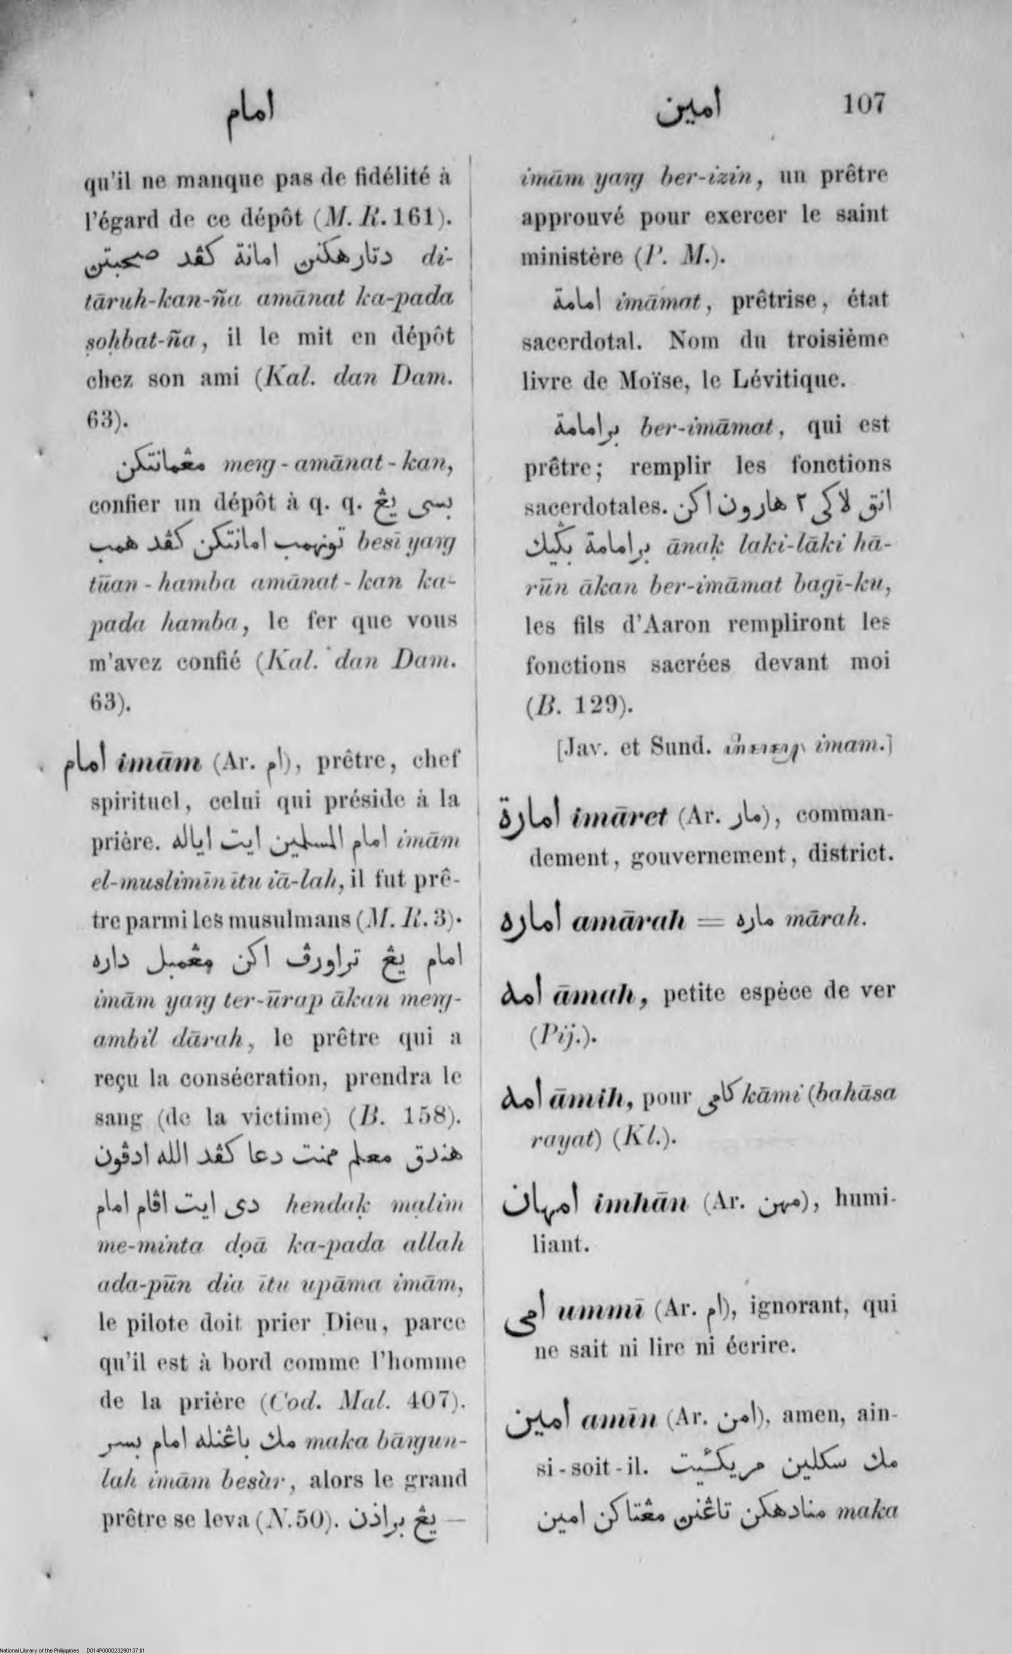 امام
امين 107
qu'il ne manque pas de fidélité à
l'égard de ce dépôt (M. R. 161).
دتارهكنن امانة كڤد صحبتن di-
tāruh-kan-ña amānat ka-pada
ṣoḥbat-ña, il le mit en dépôt
chez son ami (Kal. dan Dam.
63).
مڠمانتكن meṅg-amānat-kan,
confier un dépôt à q. q. بسى يڠ
تونهمب امانتكن كڤد همب besī yaṅg
tūan-hamba amānat-kan ka-
pada hamba, le fer que vous
m'avez confié (Kal. dan Dam.
63).
امام imām (Ar. ام), prêtre, chef
spirituel, celui qui préside à la
prière. امام المسلمين ايت اياله imām
el-muslimīn ītu iā-lah, il fut prê-
tre parmi les musulmans (M. R. 3).
امام يڠ تراورڤ اكن مڠمبل داره
imām yaṅg ter-ūrap ākan meṅg-
ambil dārah, le prêtre qui a
reçu la consécration, prendra le
sang (de la victime) (B. 158).
هندق معلم ممنت دعا كڤد الله ادڤون
دى ايت اڤام امام hendaḳ mạlim
me-minta dọā ka-pada allah
ada-pūn dia ītu upāma imām,
le pilote doit prier Dieu, parce
qu'il est à bord comme l'homme
de la prière (Cod. Mal. 407).
مك باڠنله امام بسر maka bāṅgun-
lah imām besàr, alors le grand
prêtre se leva (N. 50). يڠ براذن —
imām yaṅg ber-izin, un prêtre
approuvé pour exercer le saint
ministère (P. M.).
امامة imāmat, prêtrise, état
sacerdotal. Nom du troisième
livre de Moïse, le Lévitique.
برامامة ber-imāmat, qui est
prêtre; remplir les fonctions
sacerdotales. انق لاكى ٢ هارون اكن
برامامة بڬيك ānaḳ laki-lāki hā-
rūn ākan ber-imāmat bagī-ku,
les fils d'Aaron rempliront les
fonctions sacrées devant moi
(B. 129).
[Jav. et Sund. imam.]
امارة imāret (Ar. مار), comman-
dement, gouvernement, district.
اماره amārah = ماره mārah.
امه āmah, petite espèce de ver
(Pij.).
امه āmih, pour كامى kāmi (bahāsa
rayat) (Kl.).
امهان imhān (Ar. مهن), humi-
liant.
امى ummī (Ar. ام), ignorant, qui
ne sait ni lire ni écrire.
امين amīn (Ar. امن), amen, ain-
si-soit-il. مك سكلين مريكئيت
منادهكن تاڠنن مڠتاكن امين maka
National Library of the Philippines